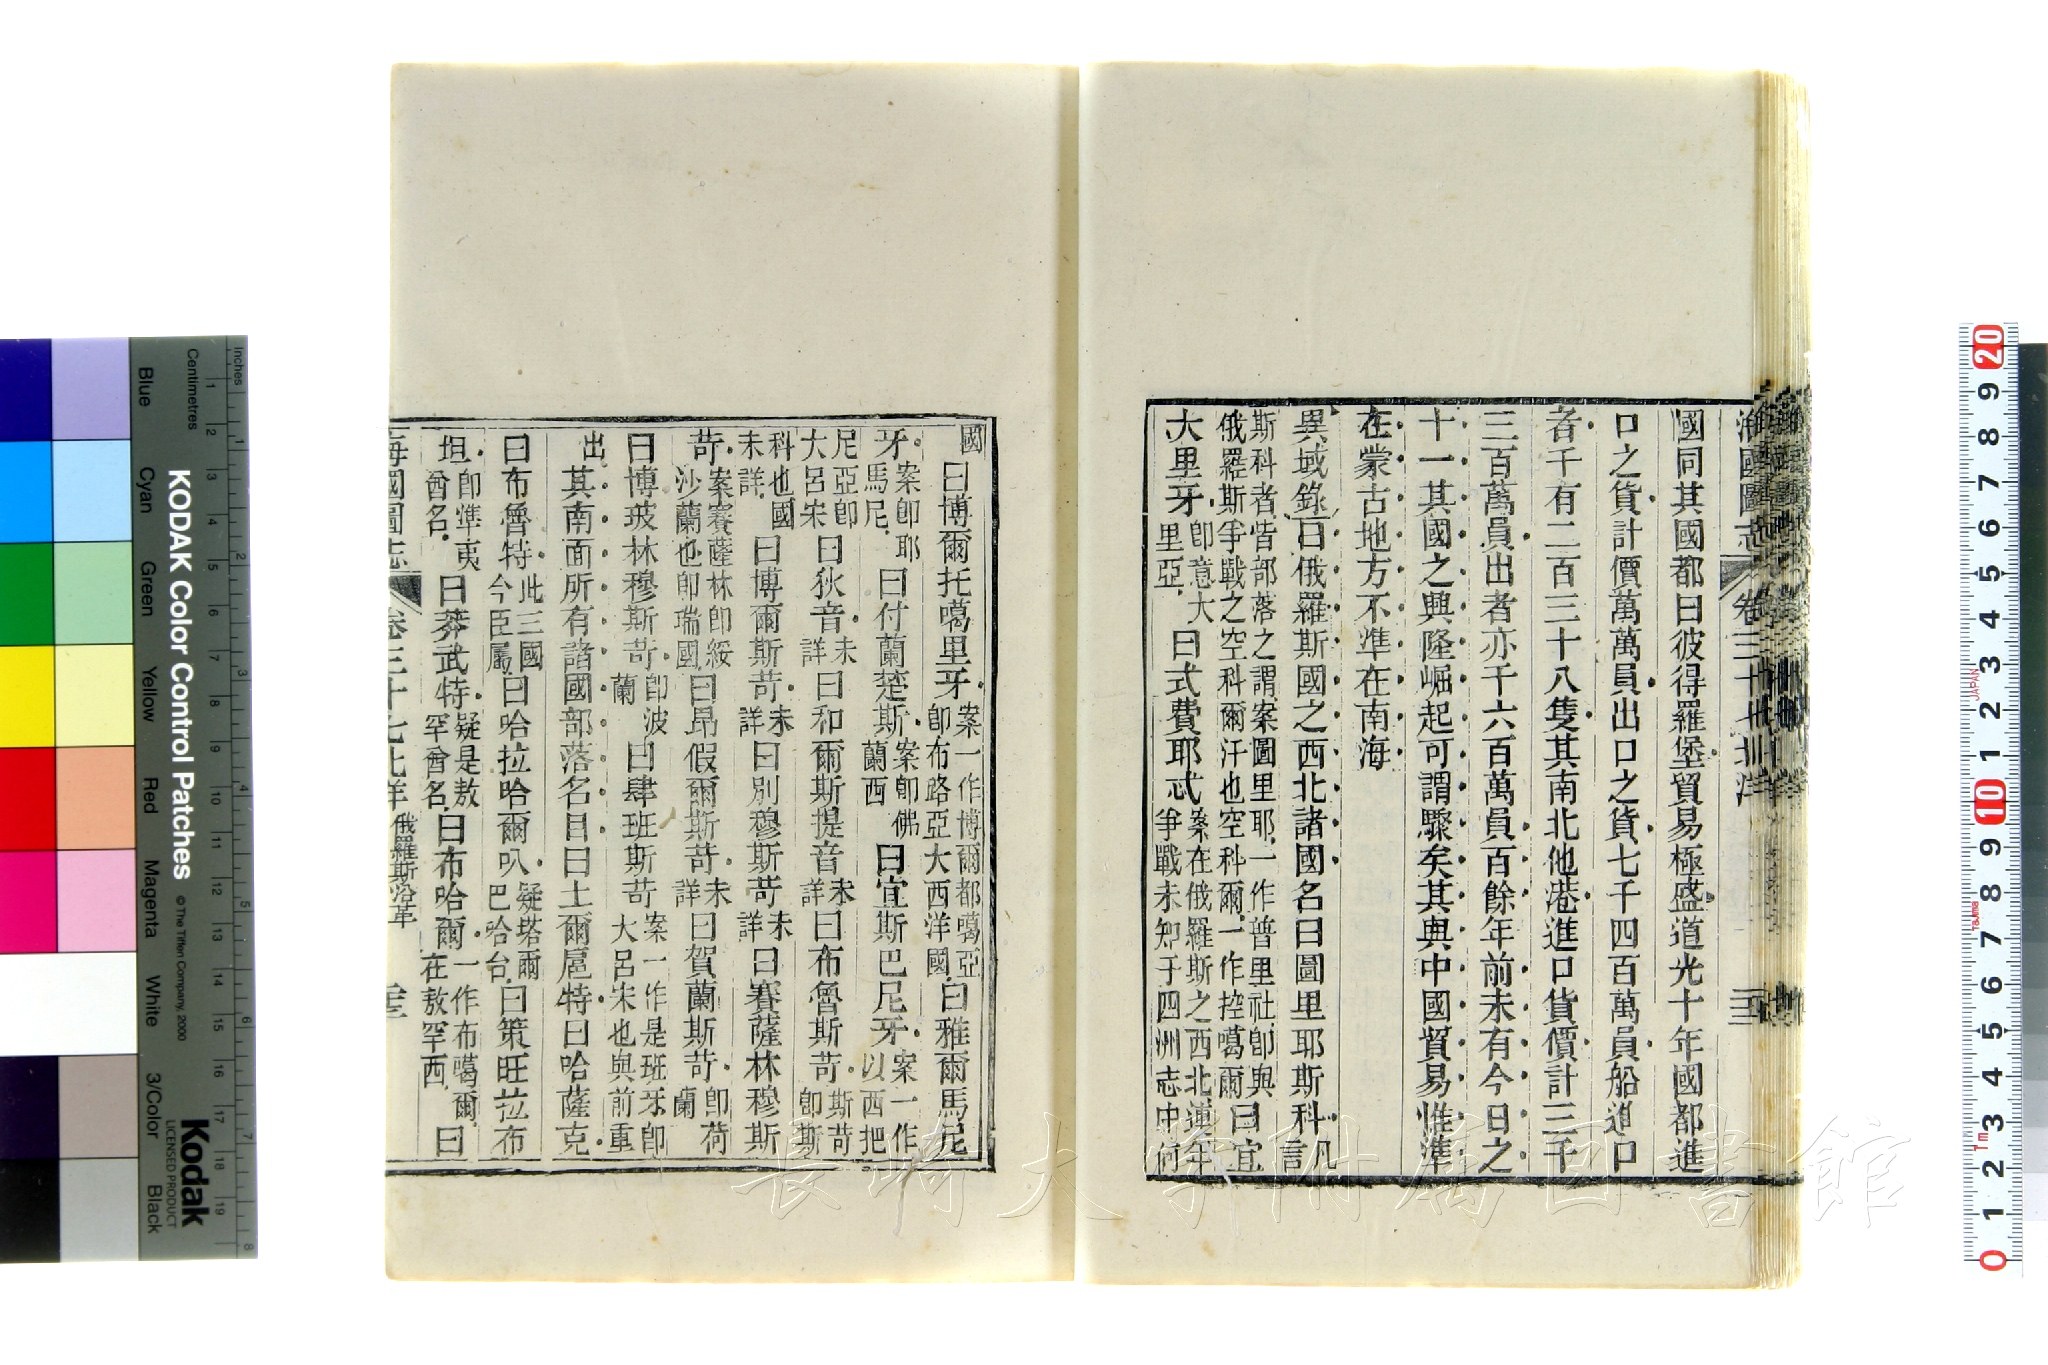 海國圖志 卷三十七 北洋
國同其國都曰彼得羅堡貿易極盛道光十年國都進
口之貨計價萬萬員出口之貨七千四百萬員船進口
者千有二百三十八隻其南北他港進口貨價計三千
三百萬員出者亦千六百萬員百餘年前未有今日之
十一其國之興隆崛起可謂驟矣其與中國貿易惟準
在蒙古地方不準在南海
異域錄曰俄羅斯國之西北諸國名曰圖里耶斯科凡言
斯科者皆部落之謂案圖里耶一作普里社卽與
俄羅斯爭戰之空科爾汗也空科爾一作控噶爾曰宜
大里牙卽意大里亞曰式費耶忒案在俄羅斯之西北連年
爭戰未知于四洲志中何
國曰博爾托噶里牙案一作博爾都噶亞卽布路亞大西洋國曰雅爾馬尼
牙案卽耶馬尼曰付蘭楚斯案卽佛蘭西曰宜斯巴尼牙案一作以西把
尼亞卽大呂宋曰狄音未詳曰和爾斯提音未詳曰布魯斯苛斯苛卽斯
科也國未詳曰博爾斯苛未詳曰別穆斯苛未詳曰賽薩林穆斯
苛案賽薩林卽綏沙蘭也卽瑞國曰昂假爾斯苛未詳曰賀蘭斯苛卽荷蘭
曰博玻林穆斯苛卽波蘭曰肆班斯苛案一作是班牙卽大呂宋也與前重
出其南面所有諸國部落名目曰土爾扈特曰哈薩克
曰布魯特此三國今臣屬曰哈拉哈爾叭疑塔爾巴哈台曰策旺拉布
坦卽準夷酋名曰莽武特疑是敖罕酋名曰布哈爾一作布噶爾在敖罕西曰
海國圖志 卷三十七 北洋 俄羅斯沿革
長崎大学附属図書館
KODAK Color Control Patches
©The Tiffen Company, 2000
Kodak
LICENSED PRODUCT
Inches
Centimetres
Blue Cyan Green Yellow Red Magenta White 3/Color Black
1 2 3 4 5 6 7 8
1 2 3 4 5 6 7 8 9 10 11 12 13 14 15 16 17 18 19
20 9 8 7 6 5 4 3 2 1 10 9 8 7 6 5 4 3 2 1 0
JAPAN